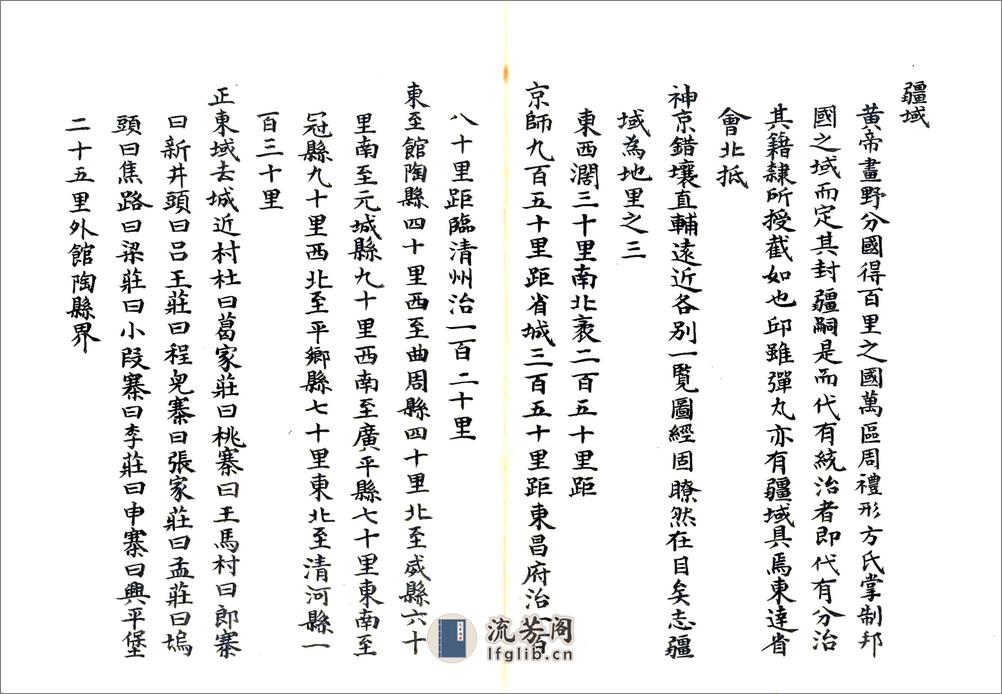 疆域
黄帝畫野分國得百里之國萬區周禮形方氏掌制邦
國之域而定其封疆嗣是而代有統治者即代有分治
其籍隷所授截如也邱雖彈丸亦有疆域具焉東達省
會北抵
神京錯壤直輔遠近各別一覧圖經固瞭然在目矣志疆
域為地里之三
東西濶三十里南北袤二百五十里距
京師九百五十里距省城三百五十里距東昌府治一百
八十里距臨清州治一百二十里
東至館陶縣四十里西至曲周縣四十里北至威縣六十
里南至元城縣九十里西南至廣平縣七十里東南至
冠縣九十里西北至平鄉縣七十里東北至清河縣一
百三十里
正東域去城近村杜曰葛家莊曰桃寨曰王馬村曰郎寨
曰新井頭曰吕王莊曰程皃寨曰張家莊曰孟莊曰塢
頭曰焦路曰梁莊曰小段寨曰李莊曰申寨曰興平堡
二十五里外館陶縣界
流芳阁
lfglib.cn